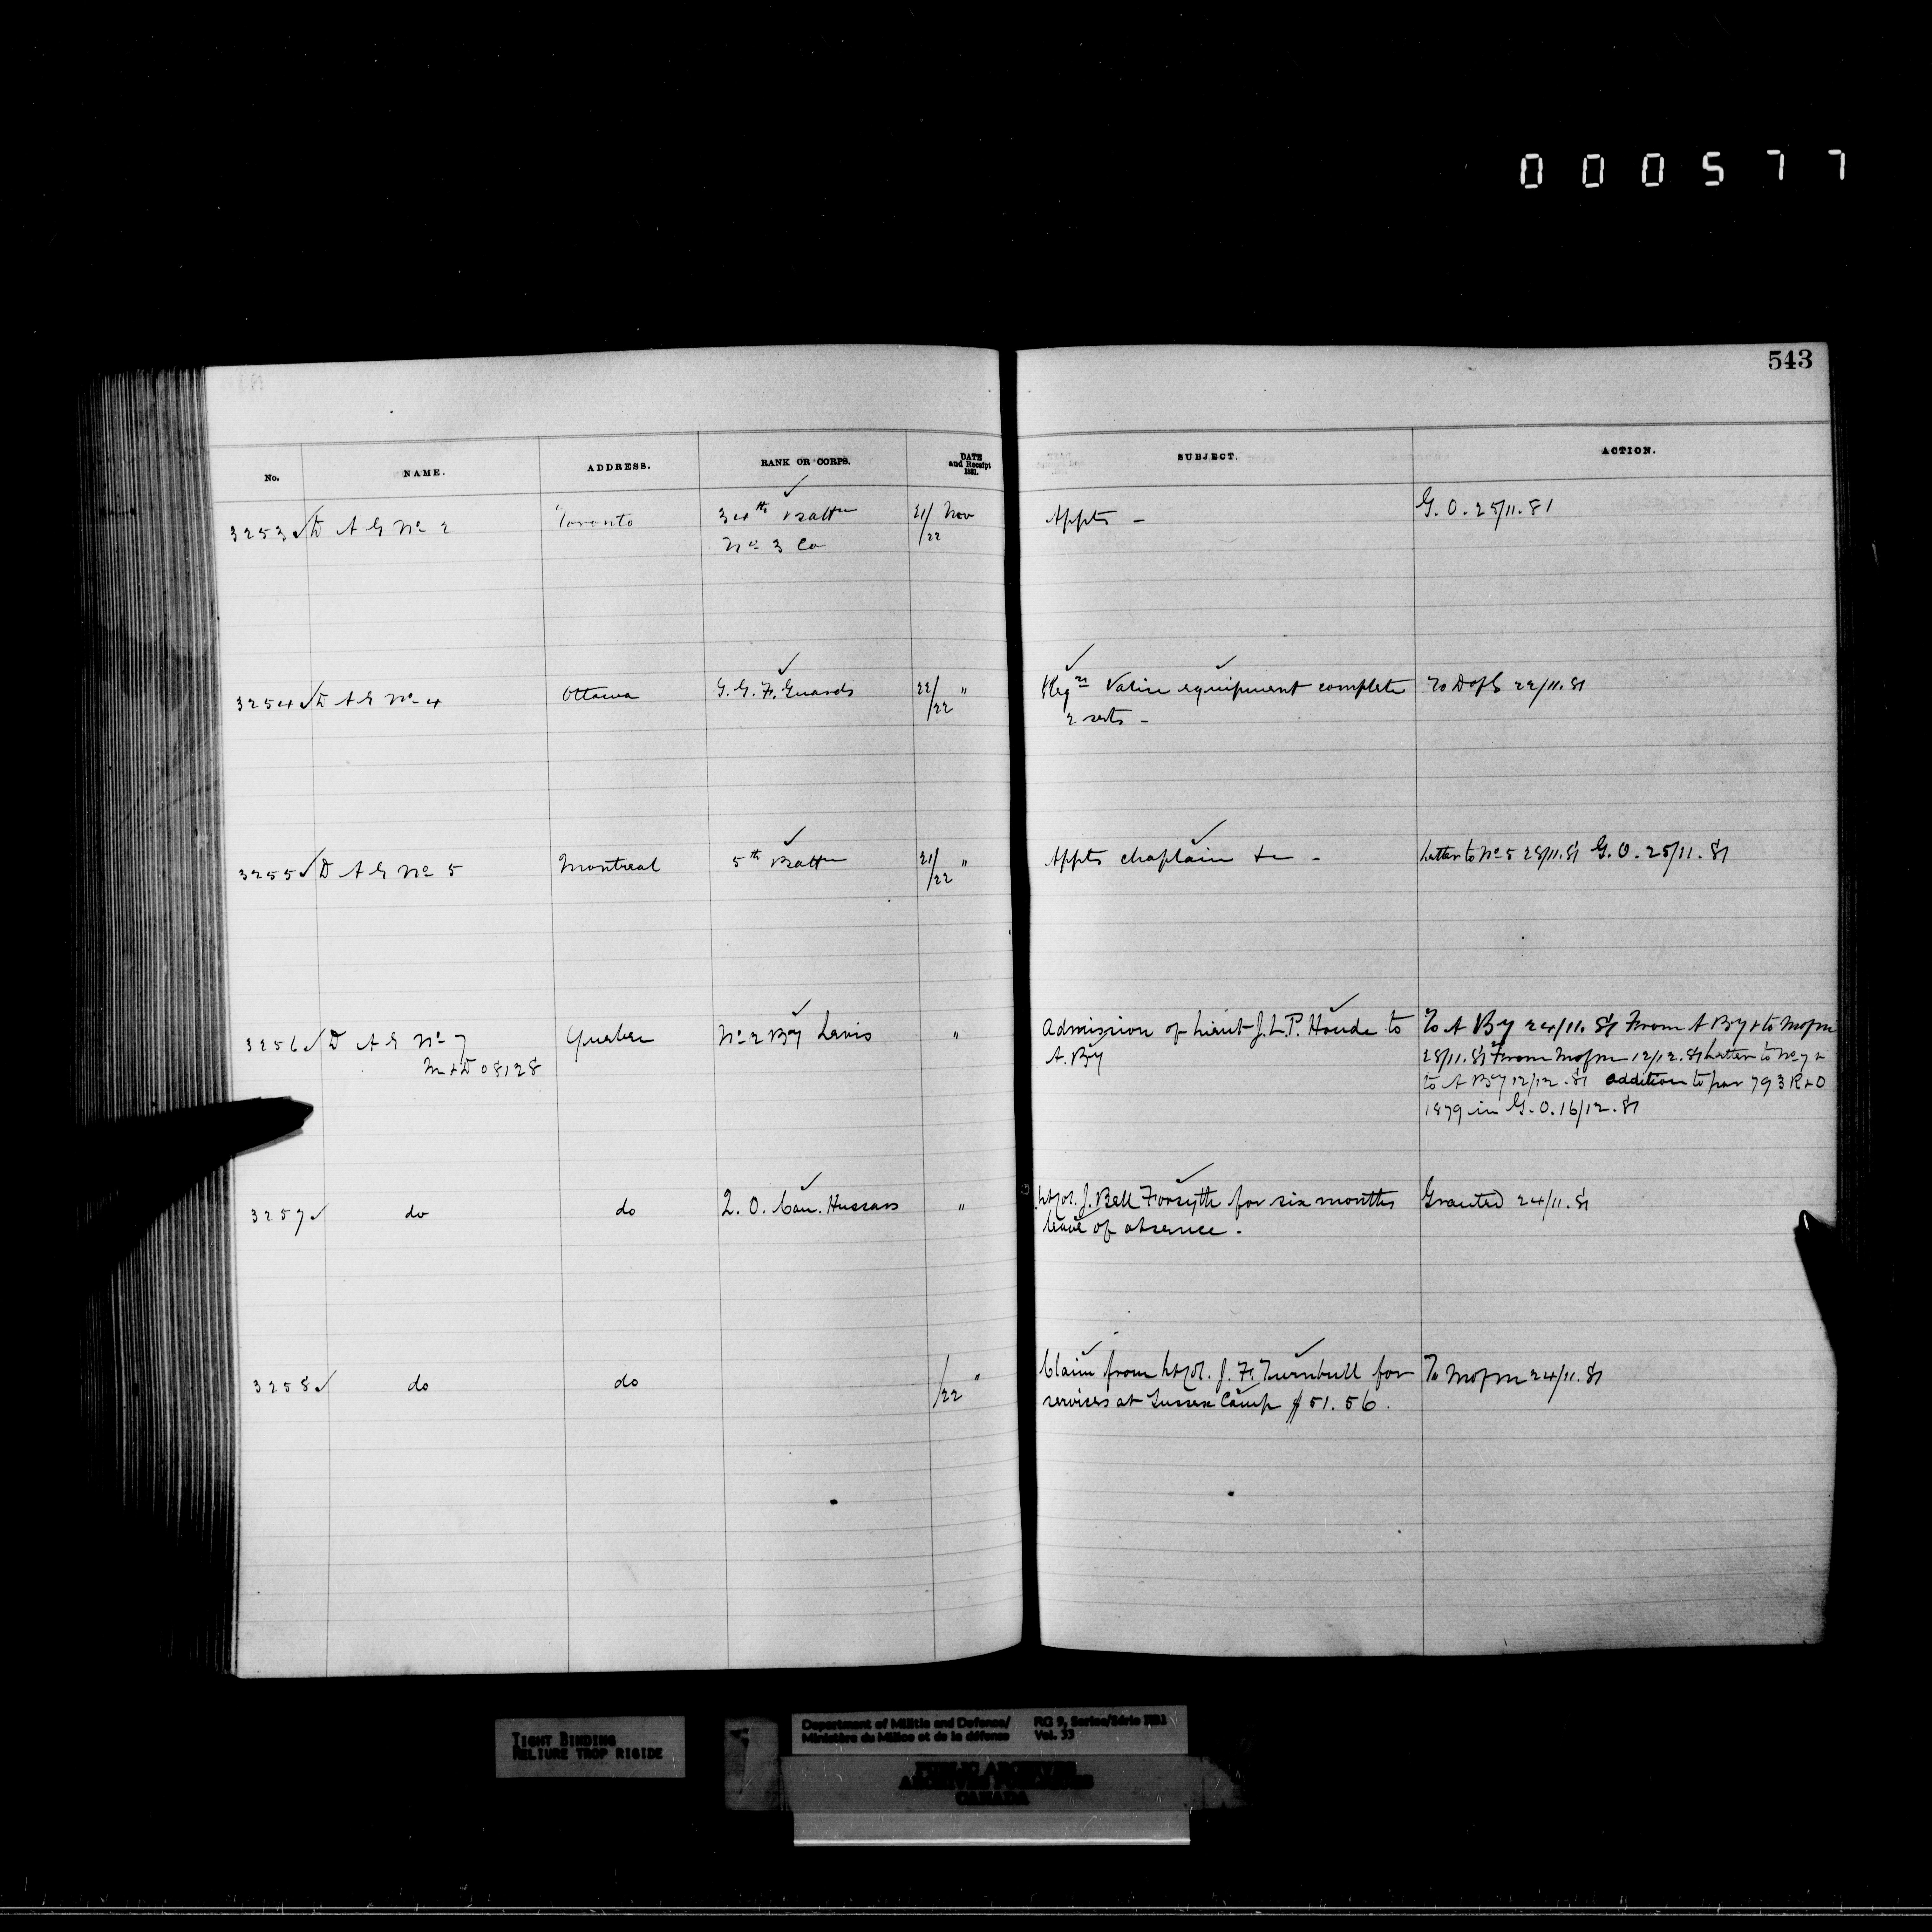 000577
543
No. NAME. ADDRESS. RANK OR CORPS. DATE and Receipt 1881. SUBJECT. ACTION.
3253 D A G No 2 Toronto 34th Battn 21/ Nov Appts - G. O. 25/11. 81
No 3 Co /22
3254 D A G No 4 Ottawa G. G. F. Guards 22/ " Reqn Valise equipment complete To D of S 22/11. 81
/22 2 sets -
3255 D A G No 5 Montreal 5th Battn 21/ " Appts chaplain &c - Letter to No 5 28/11. 81 G. O. 25/11. 81
/22
3256 D A G No 7 Quebec No 2 By Levis " Admission of Lieut J. L. P. Houde to To A By 24/11. 81 From A By & to M of M
M & D 08128 A. By 28/11. 81 From M of M 12/12. 81 Letter to No 7 &
to A By 12/12. 81 addition to par 793 R & O
1879 in G. O. 16/12. 81
3257 do do Q. O. Can. Hussars " Lt Col. J. Bell Forsyth for six months Granted 24/11. 81
leave of absence.
3258 do do " Claim from Lt Col. J. F. Turnbull for To M of M 24/11. 81
/22 services at Sussex Camp $51.56.
TIGHT BINDING
RELIURE TROP RIGIDE
Department of Militia and Defence/ RG 9, Series/Série IIB1
Ministère du Milice et de la défense Vol. 33
PUBLIC ARCHIVES
ARCHIVES PUBLIQUES
CANADA